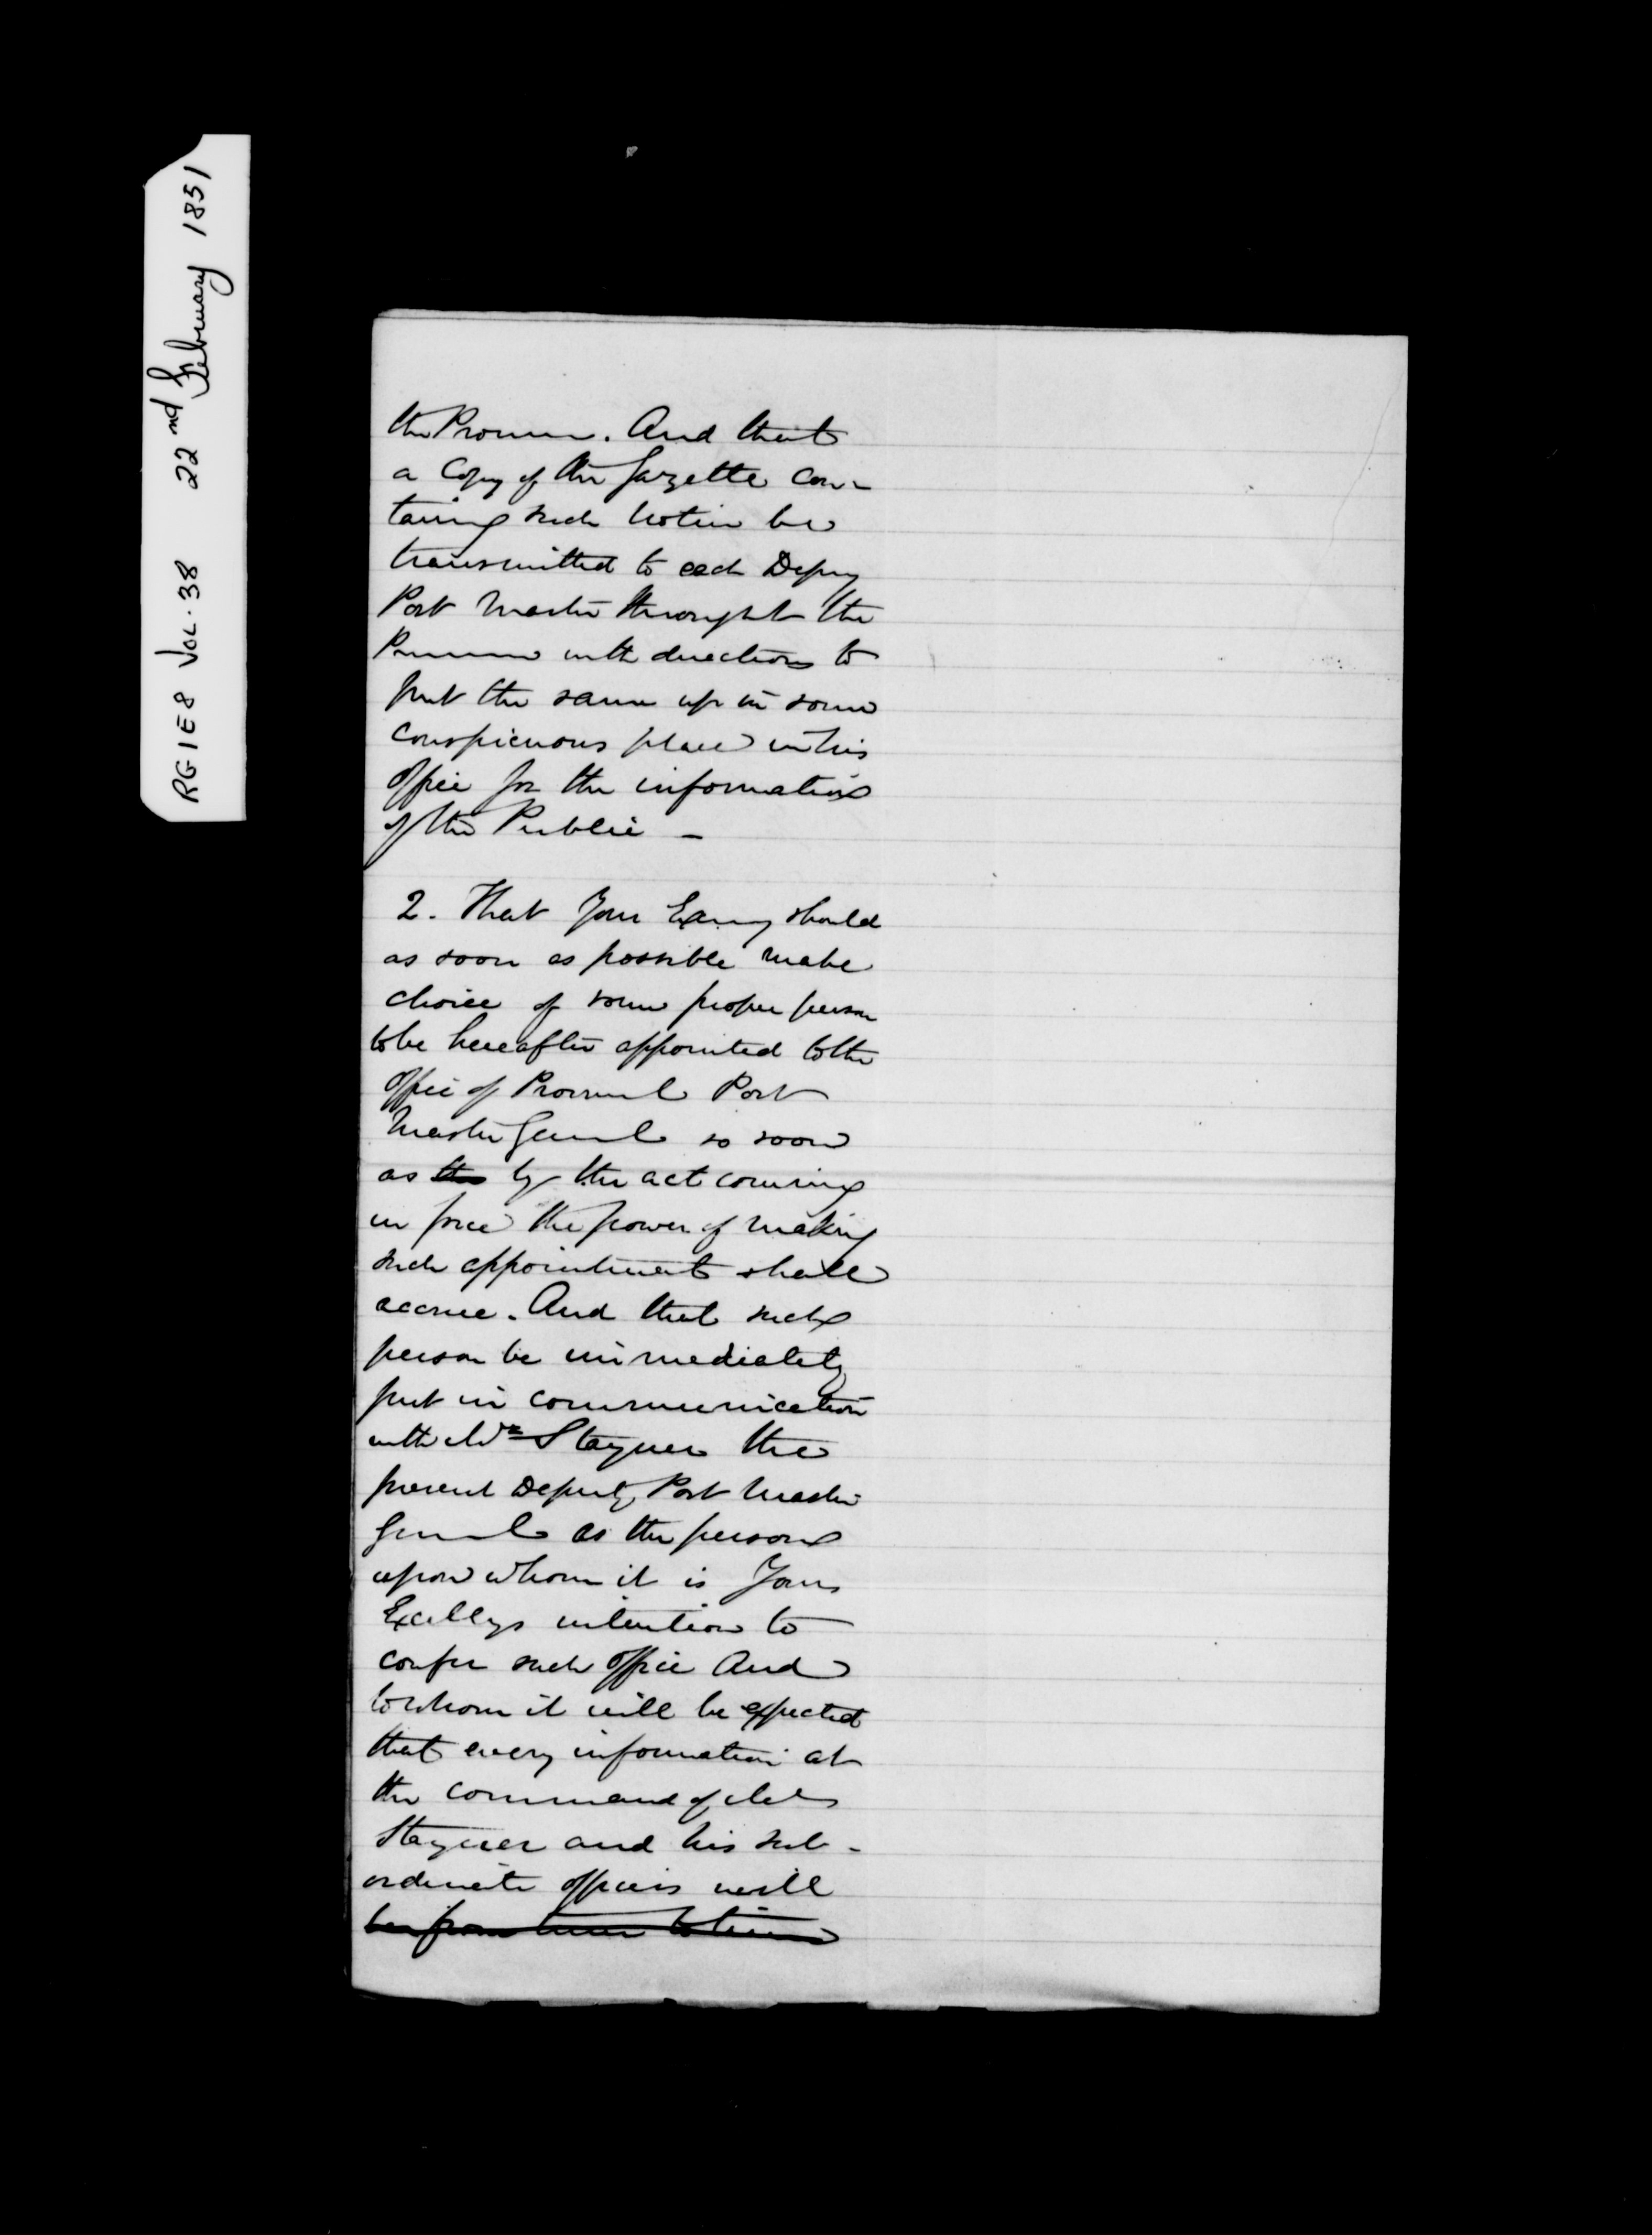 RG1E8 VOL. 38 22nd February 1851
the Province. And that
a Copy of the Gazette con-
taining such Notice be
transmitted to each Deputy
Post Master throught the
Province with directions to
put the same up in some
conspicuous place in his
office for the information
of the Public –
2. That Your Excny should
as soon as possible make
choice of some proper person
to be hereafter appointed to the
office of Provincial Post
Master General so soon
as the by the act coming
in force the power of making
such appointment shall
accrue. And that such
person be immediately
put in communication
with Mr Stayner the
present Deputy Post Master
General as the person
upon whom it is Your
Excellys intention to
confer such office And
to whom it will be expected
that every information at
the command of Mr
Stayner and his sub-
ordinate officers will
be from time to time